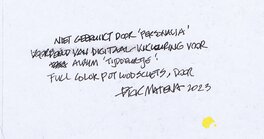 NIET GEBRUIKT DOOR 'PERSONALIA'
VOORBEELD VAN DIGITAAL INKLEURING VOOR
ALBUM 'TIJDORTJE'.
FULL COLOR POTLOODSCHETS, DOOR
DICK MATENA 2023